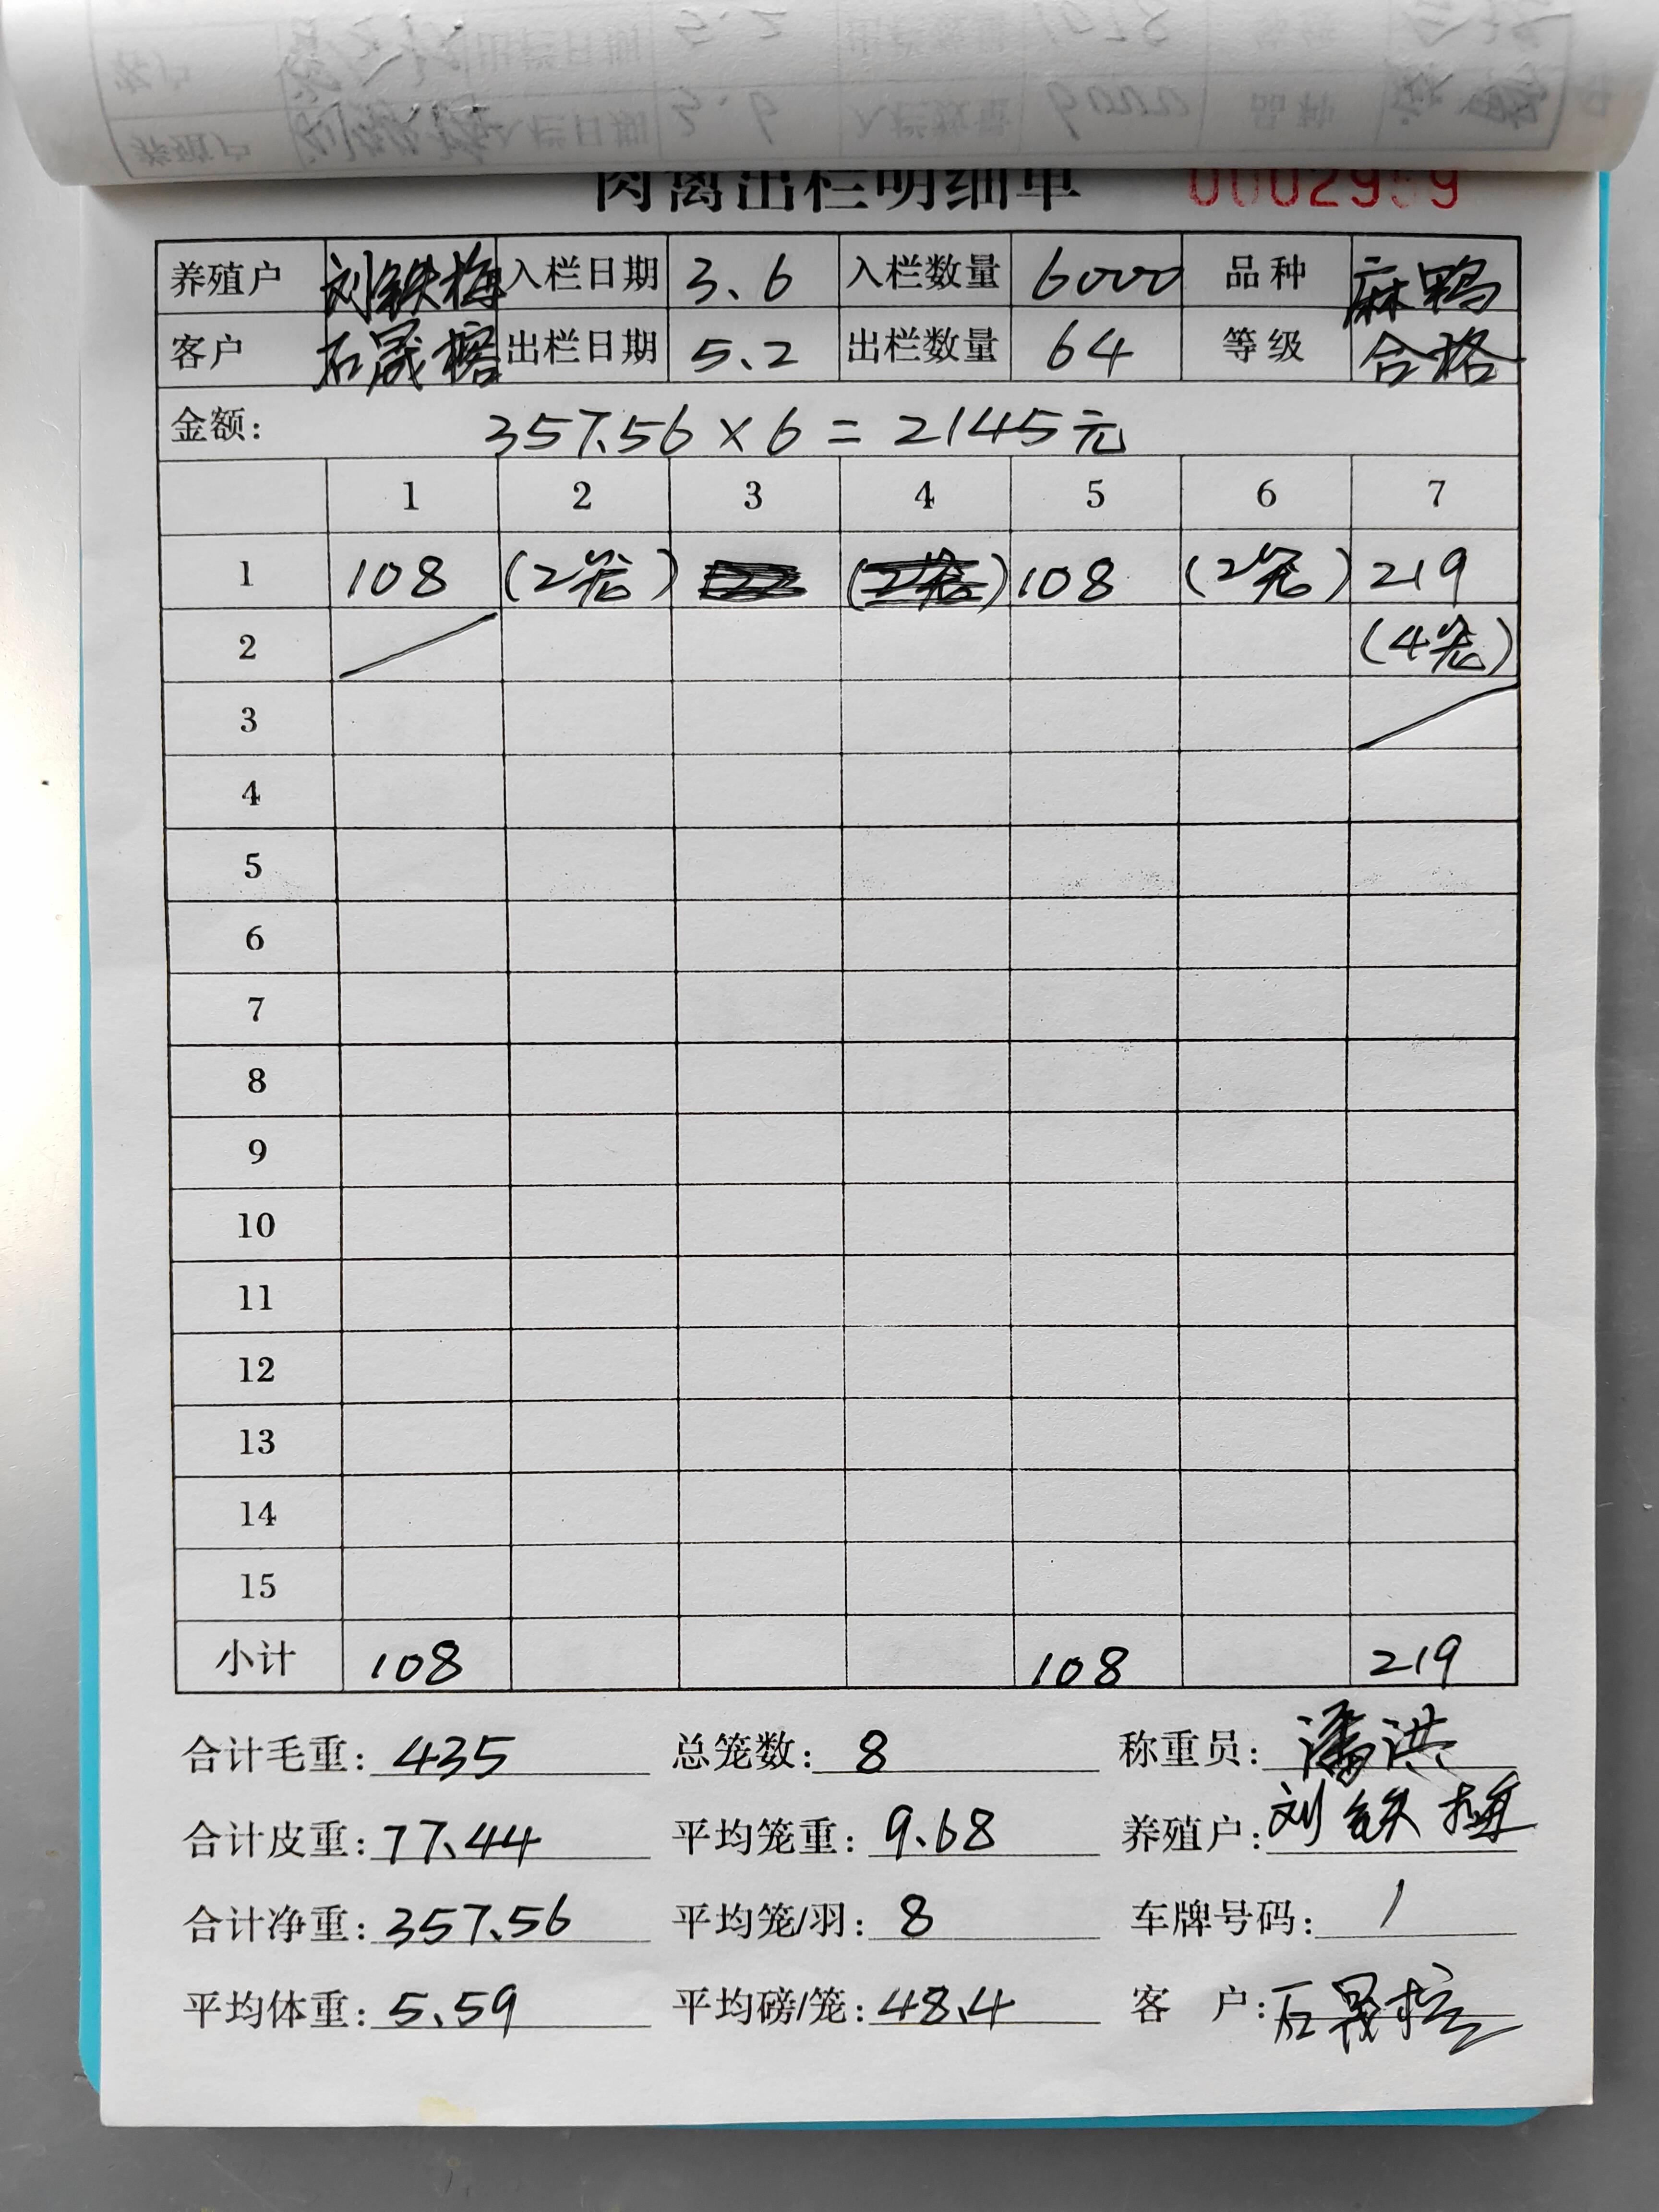 肉禽出栏明细单 0002959
养殖户 刘铁梅 入栏日期 3.6 入栏数量 6000 品种 麻鸭
客户 石晟榕 出栏日期 5.2 出栏数量 64 等级 合格
金额: 357.56×6=2145元
1 2 3 4 5 6 7
1 108 (2笼) 108 (2笼) 219
2 (4笼)
3
4
5
6
7
8
9
10
11
12
13
14
15
小计 108 108 219
合计毛重: 435 总笼数: 8 称重员: 潘洪
合计皮重: 77.44 平均笼重: 9.68 养殖户: 刘铁梅
合计净重: 357.56 平均笼/羽: 8 车牌号码: /
平均体重: 5.59 平均磅/笼: 48.4 客 户: